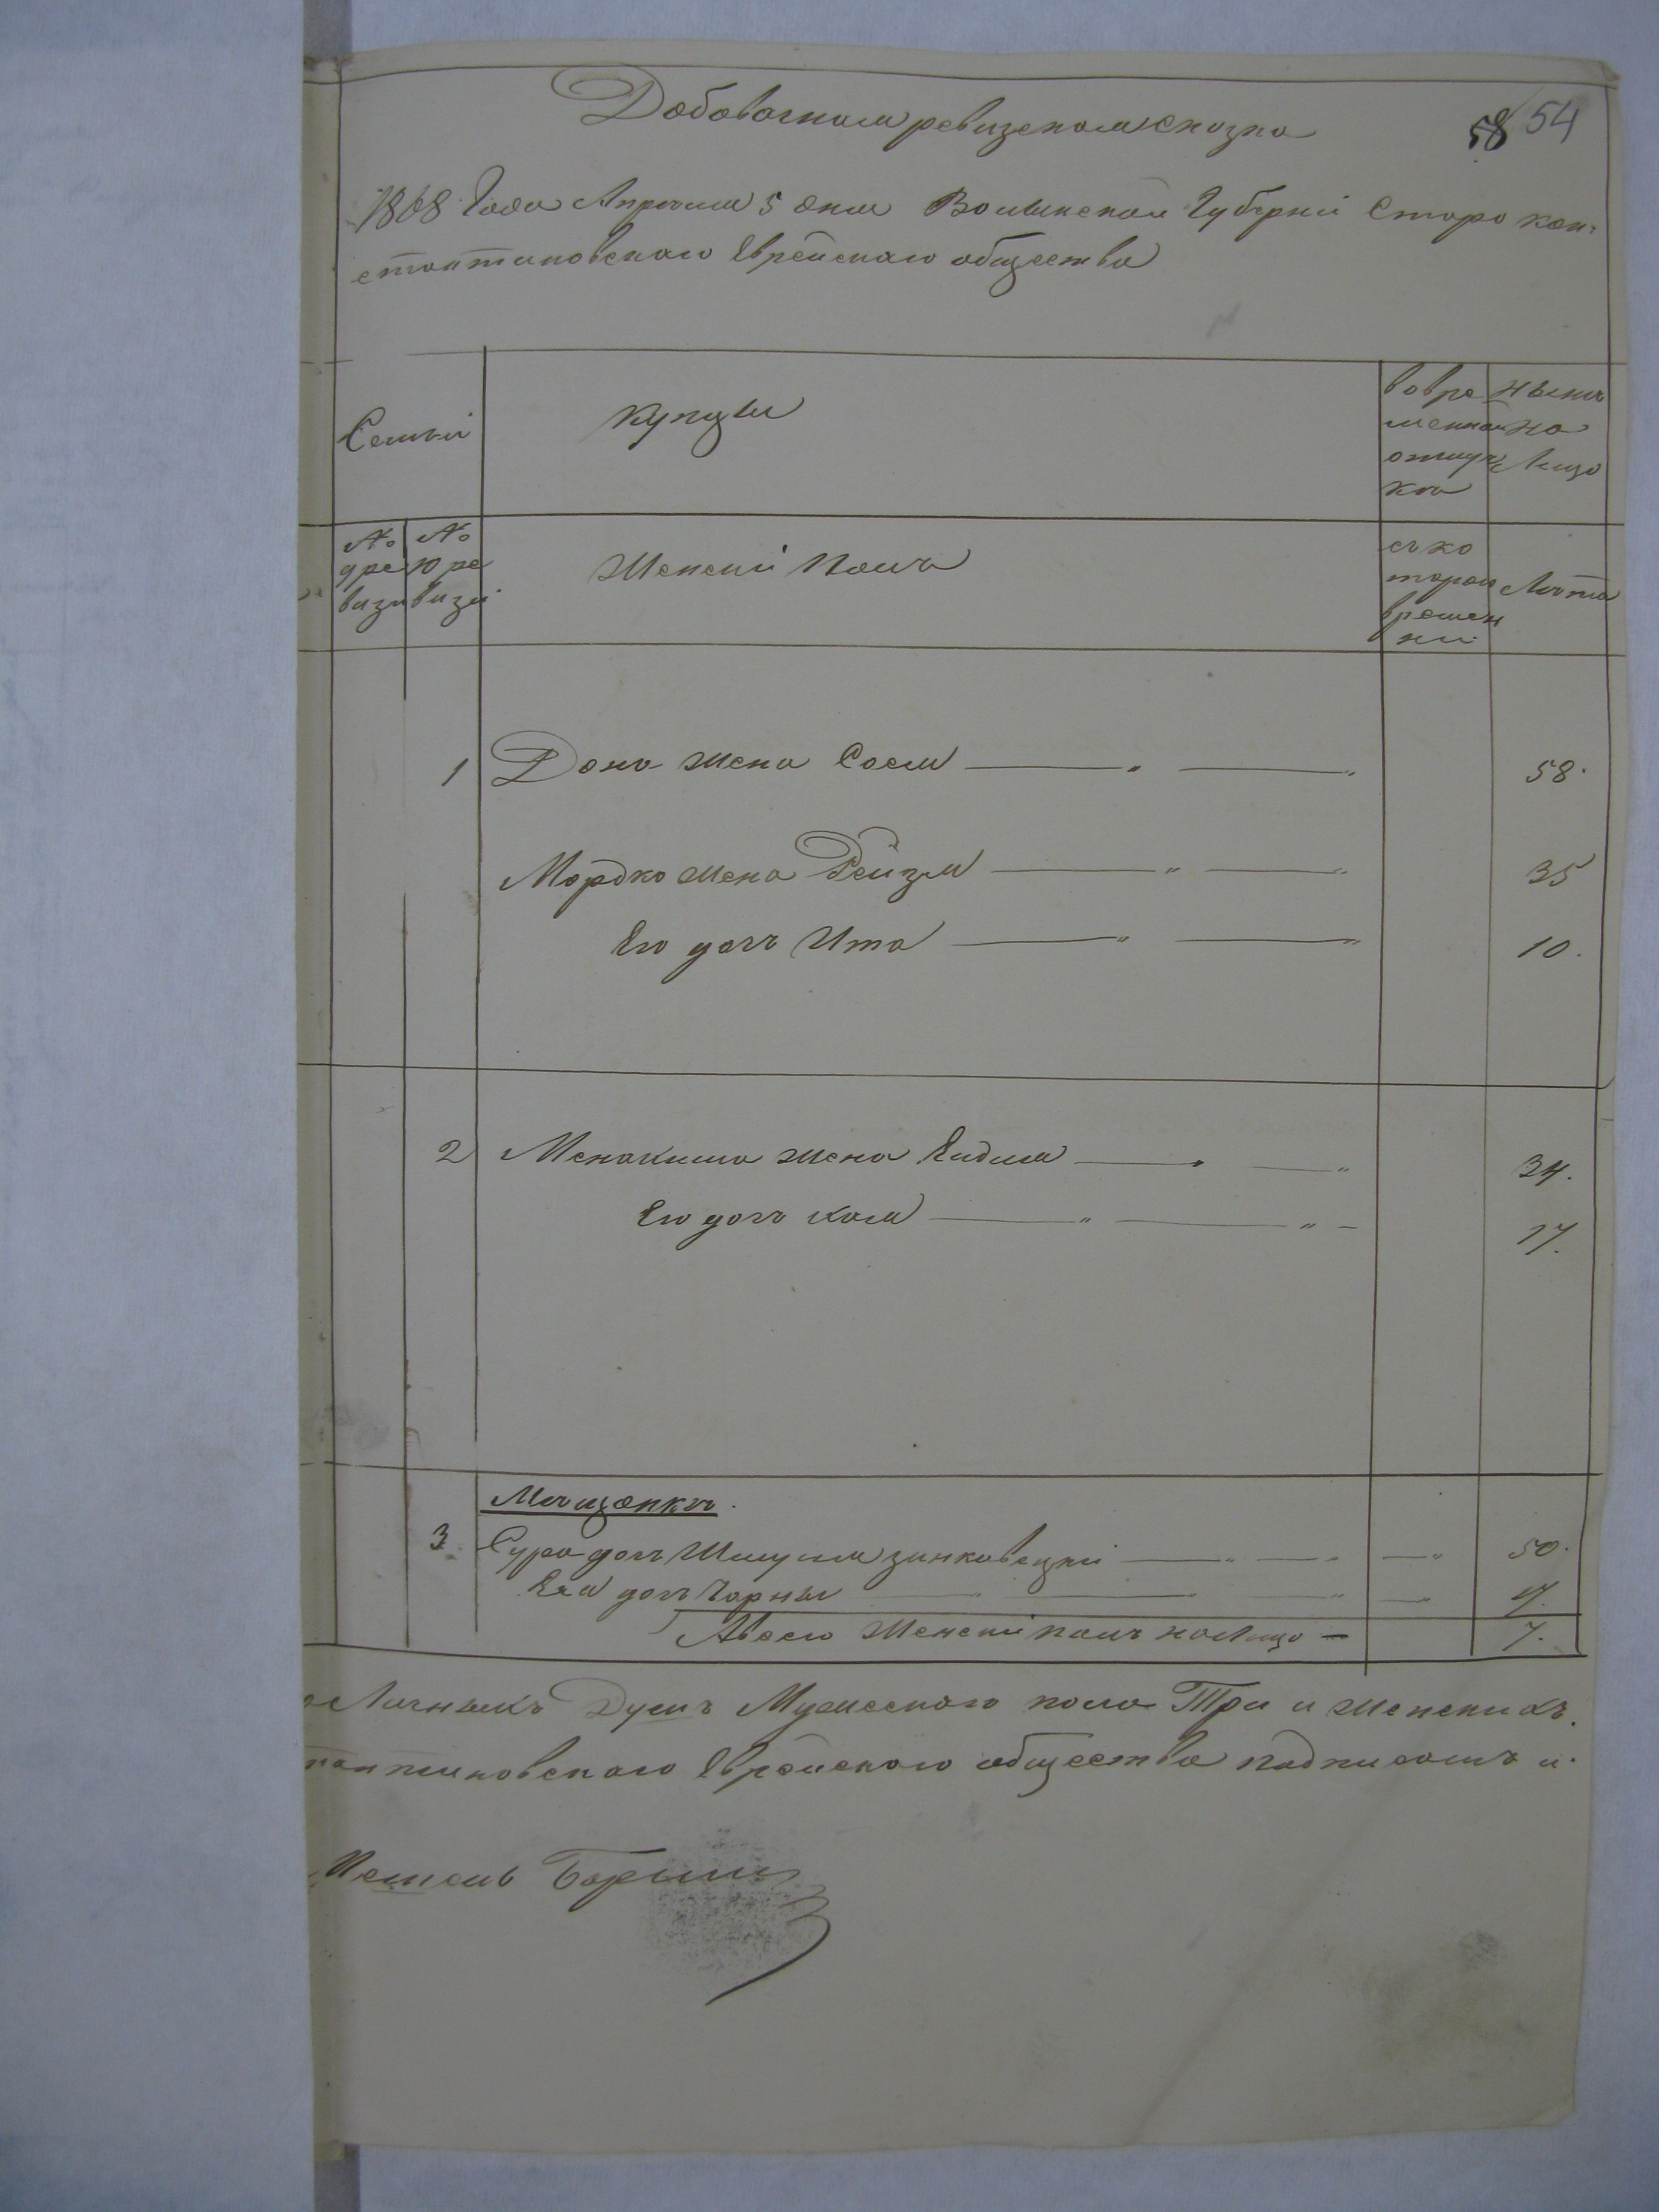 Добавочная ревизская сказка
58 54
1868 Года Апреля 5 дня Волынской Губерніи Старокон-
стантиновскаго Еврейскаго общества
Семьи
Купцы
вовре
менной
отлуч
ке
ныне
на
Лицо
№
9 ре
визи
№
10 ре
визи
Женскій Полъ
съ ко
тораго
времен
ни
Лѣта
1 Дона жена Сося 58.
Мордко жена Рейзя 35
Его дочь Ита 10.
2 Менакима жена Ендля 34.
Его дочь Хая 17.
Мѣщанкъ.
3 Сура дочь Шмуля Зинковецкій 50.
Ея дочь Чарны
Авсего Женскій полъ налицо 7.
Личныхъ Душъ Мужескаго пола Три и женскихъ
тантиновскаго Еврейскаго общества подписомъ и